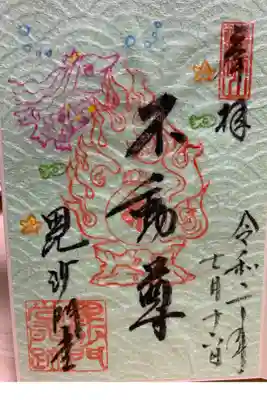 奉拝
令和二年
七月十六日
不動尊
毘沙門堂